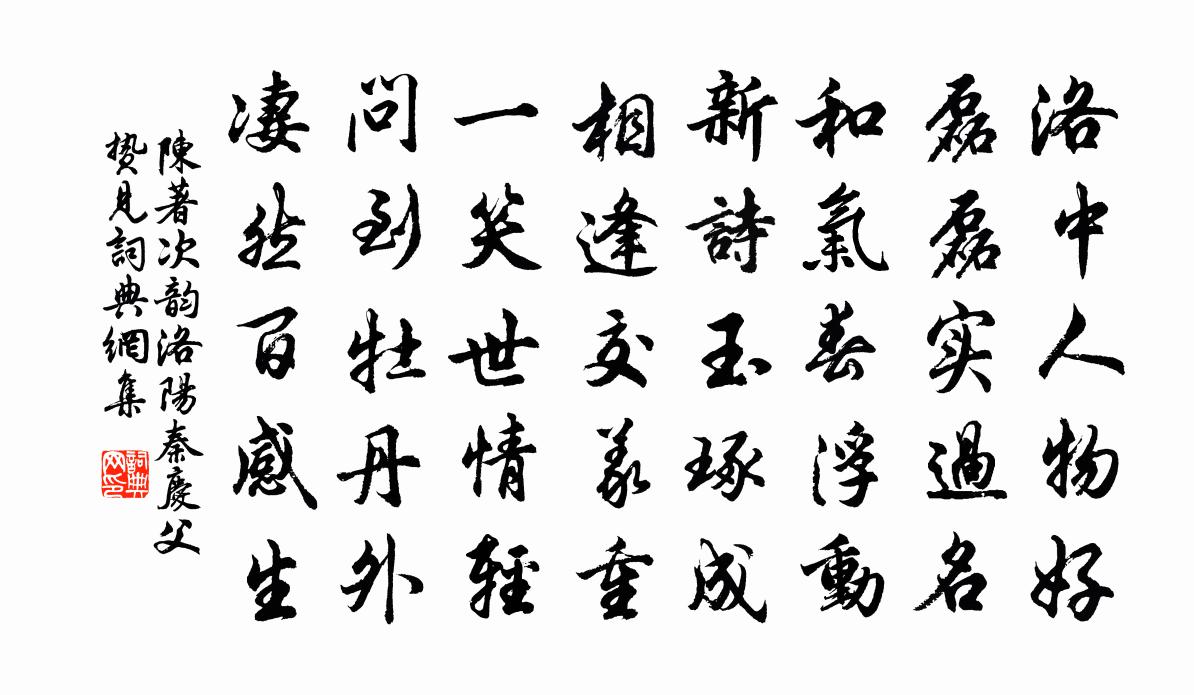 洛中人物好
磊磊实過名
和氣春浮動
新詩玉琢成
相逢交義重
一笑世情輕
問到牡丹外
凄然百感生
陳著次韵洛陽秦慶父
贄見詞典網集
詞典网印